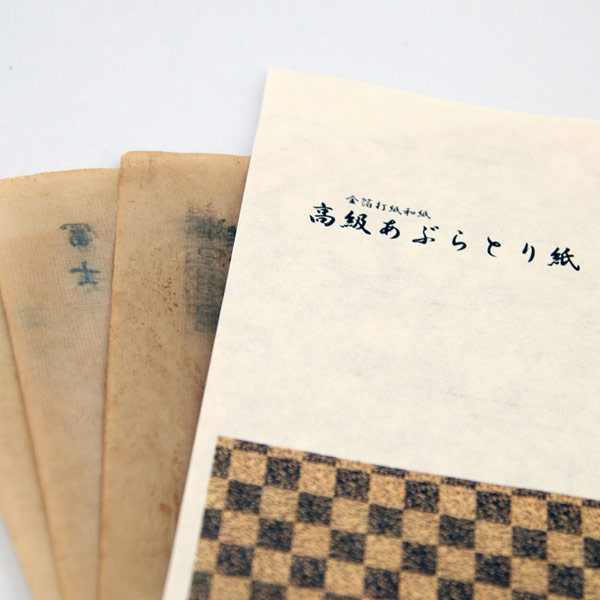 金箔打紙和紙
高級あぶらとり紙
冨士